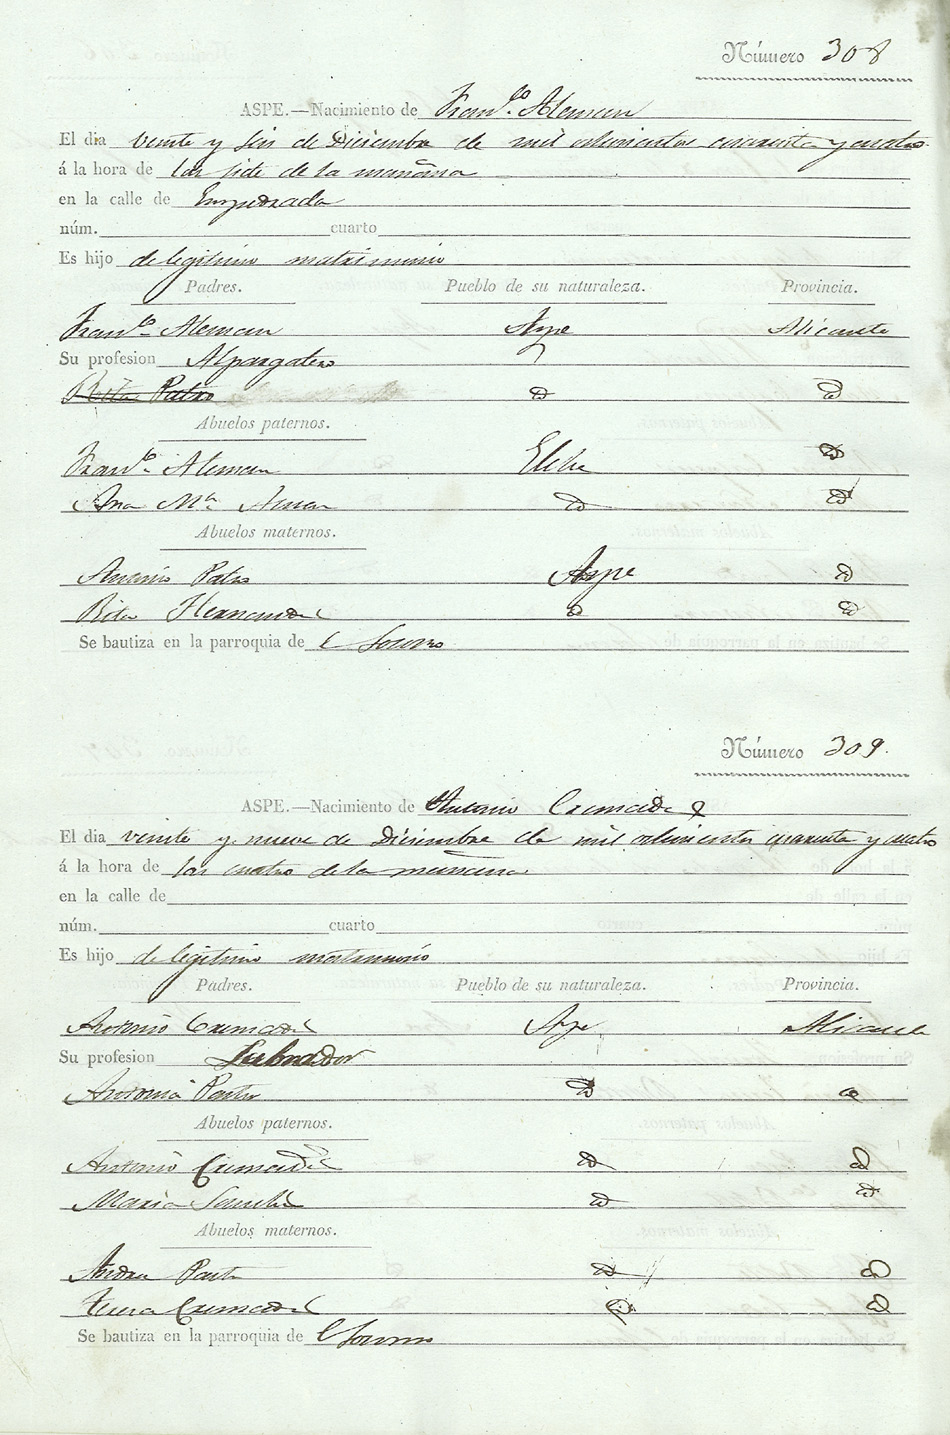 Número 308
ASPE.—Nacimiento de Franco. Aleman
El dia veinte y seis de Diciembre de mil ochocientos cuarenta y cuatro
á la hora de las siete de la mañana
en la calle de Empedrada
núm. cuarto
Es hijo de legitimo matrimonio
Padres. Pueblo de su naturaleza. Provincia.
Franco Aleman Aspe Alicante
Su profesion Alpargatero
Rita Patro id id
Abuelos paternos.
Franco. Aleman Elche id
Ana Ma id id
Abuelos maternos.
Antonio Patro Aspe id
Rita Hernandez id id
Se bautiza en la parroquia de el Socorro
Número 309.
ASPE.—Nacimiento de Antonio Cremades
El dia veinte y nueve de Diciembre de mil ochocientos cuarenta y cuatro
á la hora de las cuatro de la mañana
en la calle de
núm. cuarto
Es hijo de legitimo matrimonio
Padres. Pueblo de su naturaleza. Provincia.
Antonio Cremades Aspe Alicante
Su profesion Labrador
Antonia id id
Abuelos paternos.
Antonio Cremades id id
Maria Sanchez id id
Abuelos maternos.
id id
Teresa Cremades id id
Se bautiza en la parroquia de el Socorro